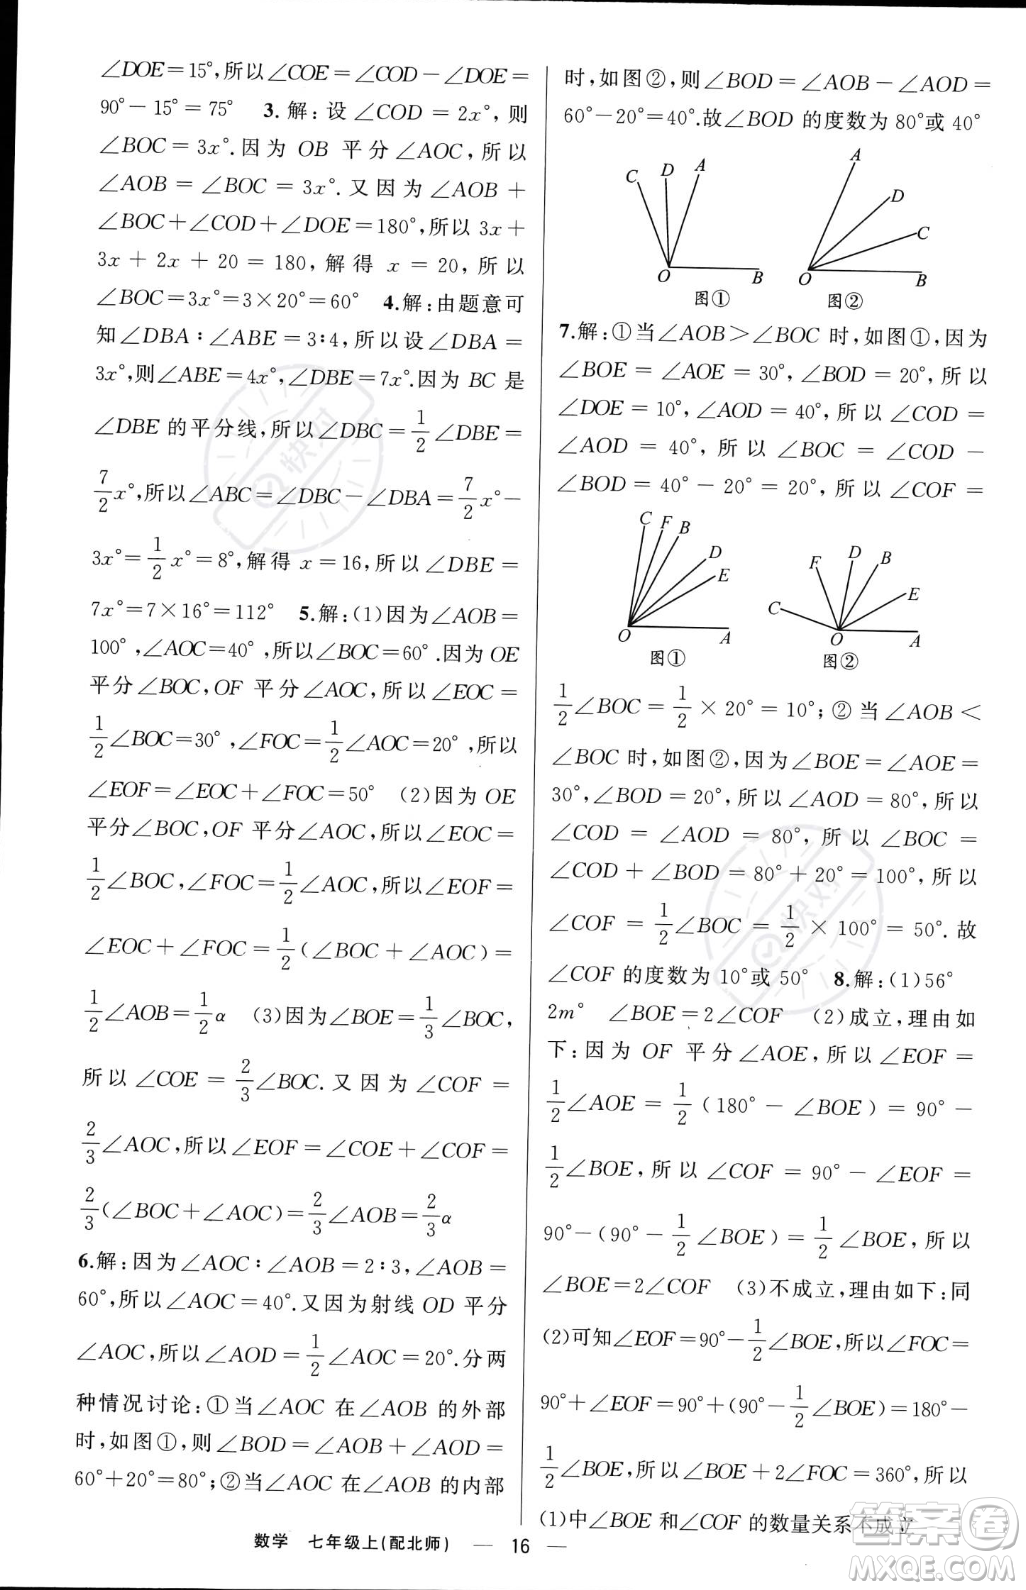 ∠DOE=15°,所以∠COE=∠COD-∠DOE=
90°-15°=75° 3.解:设∠COD=2x°,则
∠BOC=3x°.因为 OB 平分∠AOC,所以
∠AOB=∠BOC=3x°.又因为∠AOB+
∠BOC+∠COD+∠DOE=180°,所以 3x+
3x+2x+20=180,解得 x=20,所以
∠BOC=3x°=3×20°=60° 4.解:由题意可
知∠DBA∶∠ABE=3∶4,所以设∠DBA=
3x°,则∠ABE=4x°,∠DBE=7x°.因为 BC 是
∠DBE 的平分线,所以∠DBC=1/2∠DBE=
7/2x°,所以∠ABC=∠DBC-∠DBA=7/2x°-
3x°=1/2x°=8°,解得 x=16,所以∠DBE=
7x°=7×16°=112° 5.解:(1)因为∠AOB=
100°,∠AOC=40°,所以∠BOC=60°.因为 OE
平分∠BOC,OF 平分∠AOC,所以∠EOC=
1/2∠BOC=30°,∠FOC=1/2∠AOC=20°.所以
∠EOF=∠EOC+∠FOC=50° (2)因为 OE
平分∠BOC,OF 平分∠AOC,所以∠EOC=
1/2∠BOC,∠FOC=1/2∠AOC,所以∠EOF=
∠EOC+∠FOC=1/2(∠BOC+∠AOC)=
1/2∠AOB=1/2α (3)因为∠BOE=1/3∠BOC,
所以∠COE=2/3∠BOC.又因为∠COF=
2/3∠AOC,所以∠EOF=∠COE+∠COF=
2/3(∠BOC+∠AOC)=2/3∠AOB=2/3α
6.解:因为∠AOC∶∠AOB=2∶3,∠AOB=
60°,所以∠AOC=40°.又因为射线 OD 平分
∠AOC,所以∠AOD=1/2∠AOC=20°.分两
种情况讨论:①当∠AOC 在∠AOB 的外部
时,如图①,则∠BOD=∠AOB+∠AOD=
60°+20°=80°;②当∠AOC 在∠AOB 的内部
时,如图②,则∠BOD=∠AOB-∠AOD=
60°-20°=40°.故∠BOD 的度数为 80°或 40°
C D A O B
图①
A D C O B
图②
7.解:①当∠AOB>∠BOC 时,如图①,因为
∠BOE=∠AOE=30°,∠BOD=20°,所以
∠DOE=10°,∠AOD=40°,所以∠COD=
∠AOD=40°,所以∠BOC=∠COD-
∠BOD=40°-20°=20°,所以∠COF=
C F B D E O A
图①
F D B E C O A
图②
1/2∠BOC=1/2×20°=10°;②当∠AOB<
∠BOC 时,如图②,因为∠BOE=∠AOE=
30°,∠BOD=20°,所以∠AOD=80°,所以
∠COD=∠AOD=80°,所以∠BOC=
∠COD+∠BOD=80°+20°=100°,所以
∠COF=1/2∠BOC=1/2×100°=50°.故
∠COF 的度数为 10°或 50° 8.解:(1)56°
2m° ∠BOE=2∠COF (2)成立,理由如
下:因为 OF 平分∠AOE,所以∠EOF=
1/2∠AOE=1/2(180°-∠BOE)=90°-
1/2∠BOE,所以∠COF=90°-∠EOF=
90°-(90°-1/2∠BOE)=1/2∠BOE,所以
∠BOE=2∠COF (3)不成立,理由如下:同
(2)可知∠EOF=90°-1/2∠BOE,所以∠FOC=
90°+∠EOF=90°+(90°-1/2∠BOE)=180°-
1/2∠BOE,所以∠BOE+2∠FOC=360°,所以
(1)中∠BOE 和∠COF 的数量关系不成立
数学 七年级上(配北师) — 16 —
快对
快对
答案圈